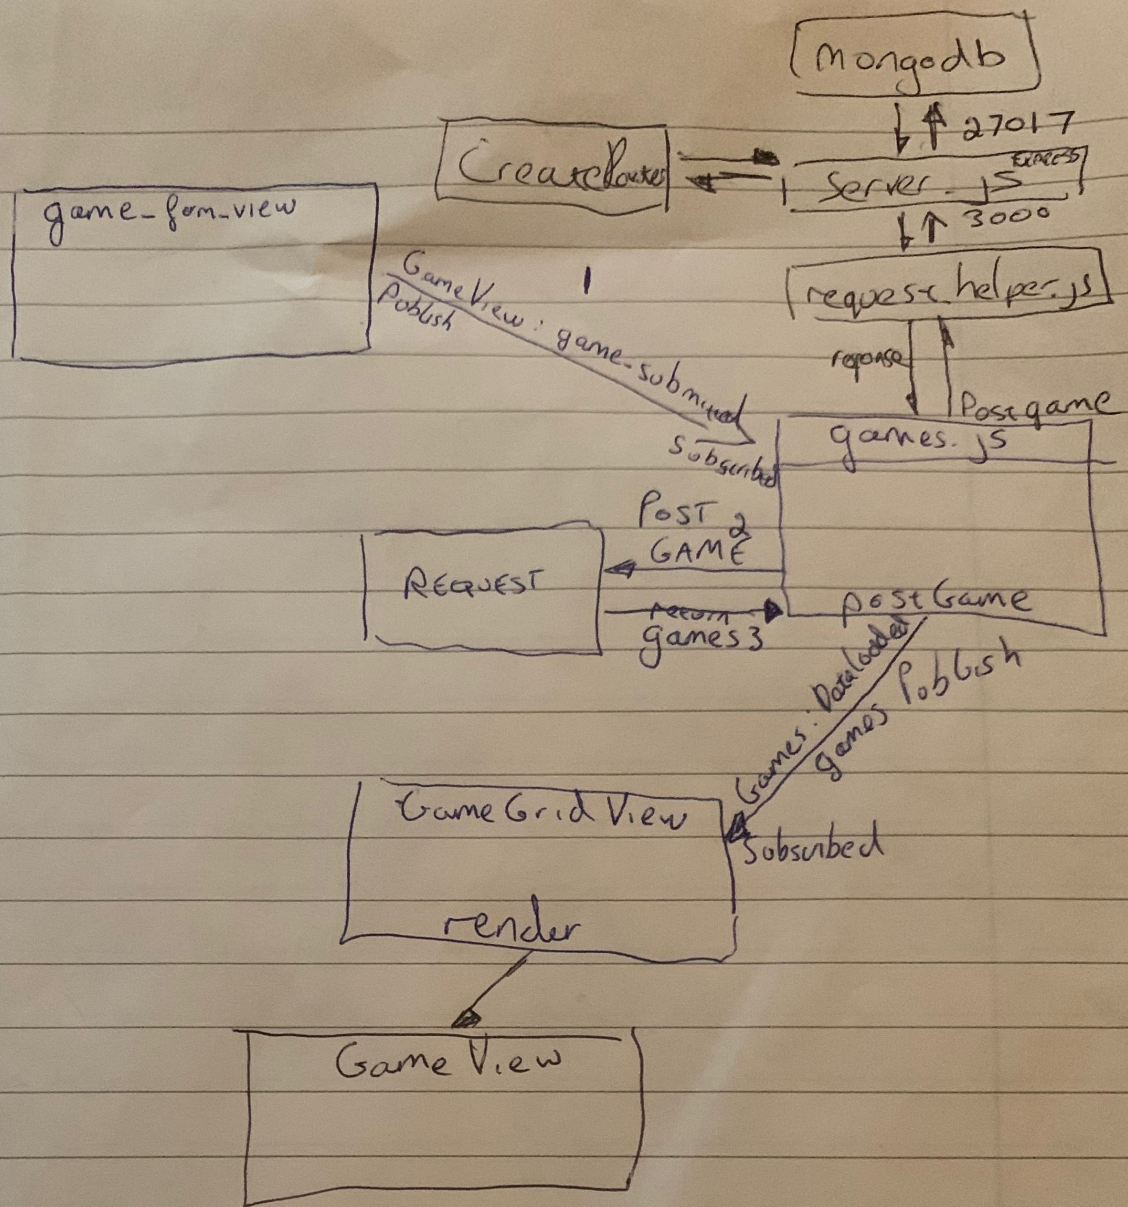 mongodb
27017
CreateRouter
Server.js
EXPRESS
3000
game_form_view
request_helper.js
GameView: game-submitted
Poblish
1
reponse
Postgame
games.js
Subscribed
POST 2
GAME
REQUEST
return
games 3
postGame
Games: Dataloaded
games Poblish
GameGridView
Sobscribed
render
Game View